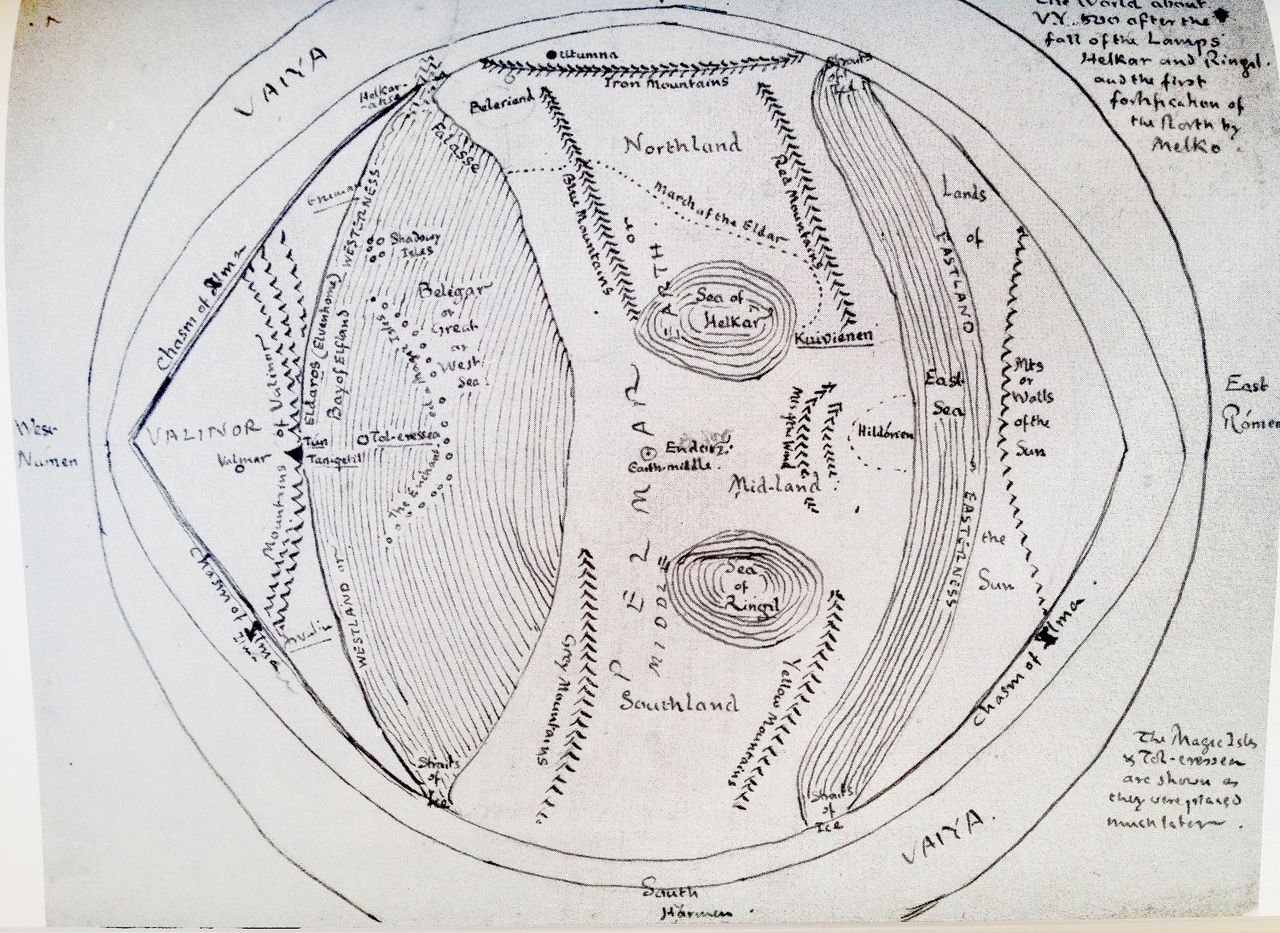 The World about
V.Y. 500 after the
fall of the Lamps
Helkar and Ringil.
and the first
fortification of
the North by
Melko.
VAIYA
Utumna
Iron Mountains
Straits
of
Ice
Helkar-
Beleriand
Falasse
Northland
Lands
of
the
Sun
Blue Mountains
Red Mountains
March of the Eldar
Chasm of Ilma
WESTERNESS
Shadowy
Isles
Belegar
or
Great
or
West
Sea
EARTH
or
Sea of
Helkar
Kuivienen
EASTLAND
Eldaros (Elvenhome)
Bay of Elfland
Magic Isles
East
Sea
Mts
or
Walls
of the
Sun
East
Rómen
West-
Numen
VALINOR
Valmar
Mountains of Valinor
Tun
Taniquetil
Tol-eressea
The Enchanted
Endor
Earth-middle.
Mts of the Wind
Hildórien
Mid-land
PELMAR
MIDDLE
Sea
of
Ringil
EASTERNESS
WESTLAND
Chasm of Ilma
Ilma
Grey Mountains
Southland
Yellow Mountains
Chasm of Ilma
Straits
of
Ice
Straits
of
Ice
The Magic Isles
& Tol-eressea
are shown as
they were placed
much later.
VAIYA.
South
Harmen.